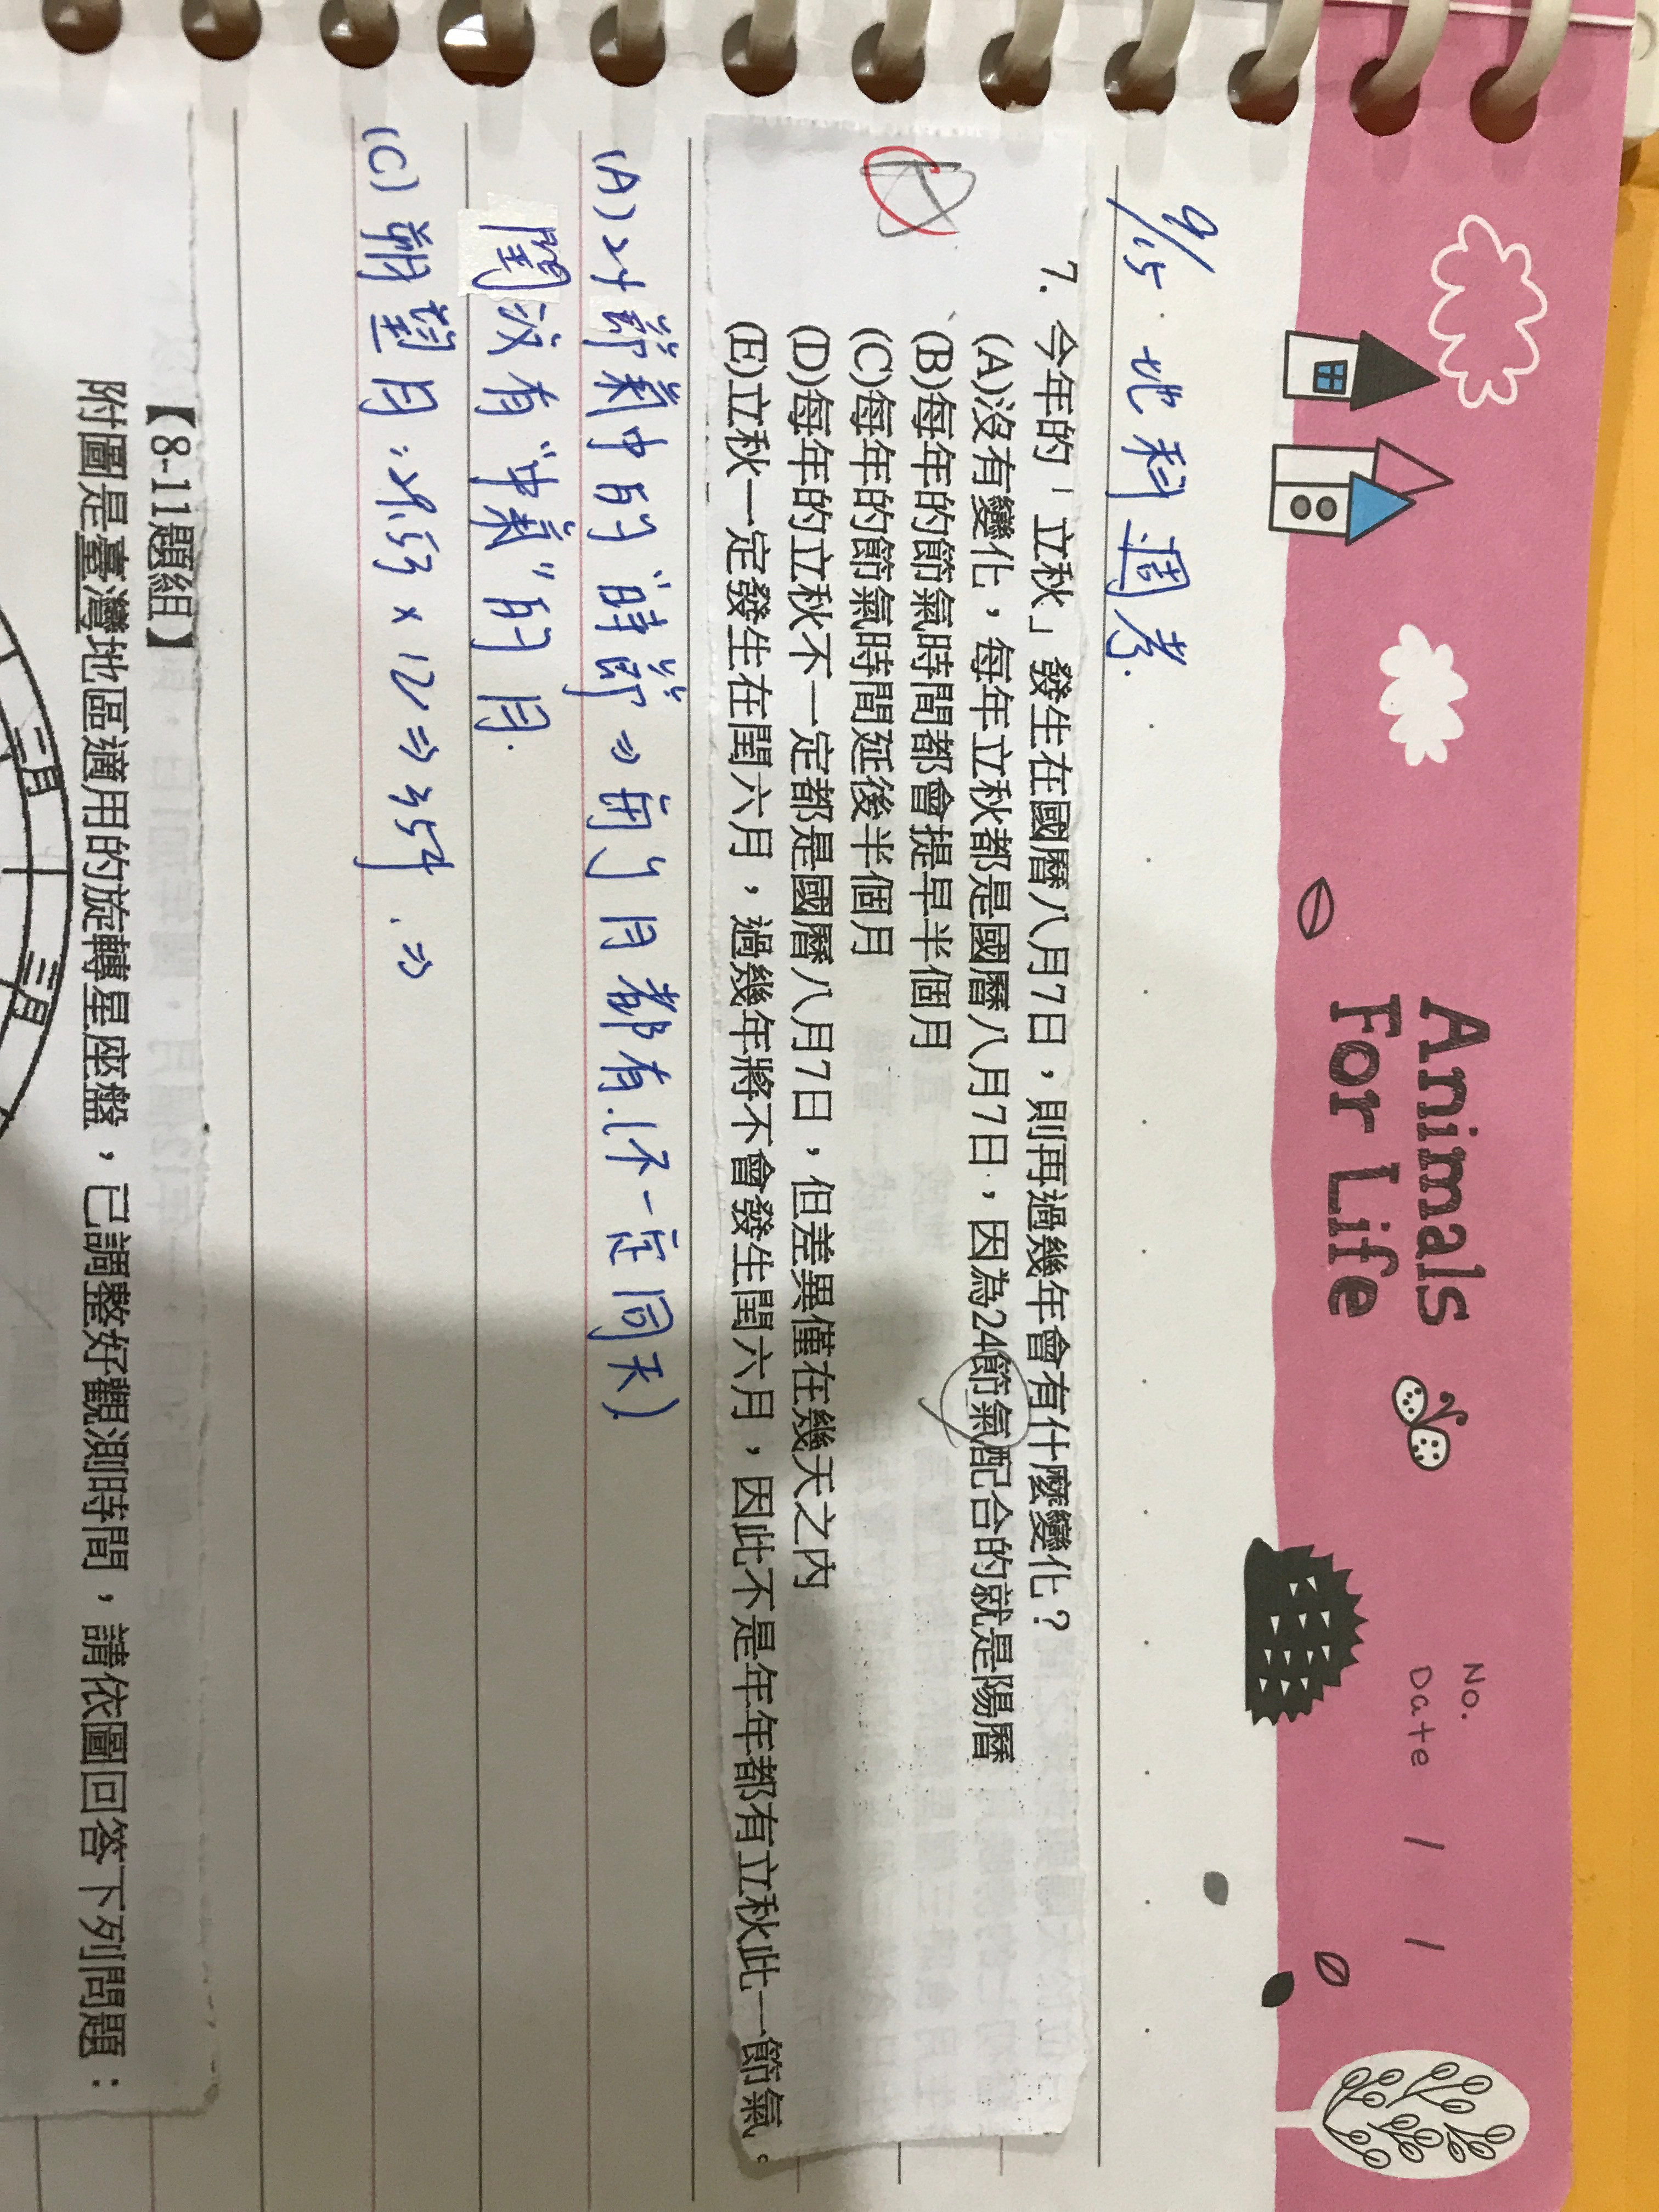 Animals
For Life
No.
Date / /
9/15. 地科週考.
7. 今年的「立秋」發生在國曆八月7日，則再過幾年會有什麼變化？
(A)沒有變化，每年立秋都是國曆八月7日，因為24節氣配合的就是陽曆
(B)每年的節氣時間都會提早半個月
(C)每年的節氣時間延後半個月
(D)每年的立秋不一定都是國曆八月7日，但差異僅在幾天之內
(E)立秋一定發生在閏六月，過幾年將不會發生閏六月，因此不是年年都有立秋此一節氣。
(A) 24 節氣中的"時節 ⇒ 每月都有.(不一定同天).
閏 沒有"中氣"的月.
(C) 朔望月：29.53 × 12 ⇒ 354. ⇒
【8-11題組】
附圖是臺灣地區適用的旋轉星座盤，已調整好觀測時間，請依圖回答下列問題：
二月
三月